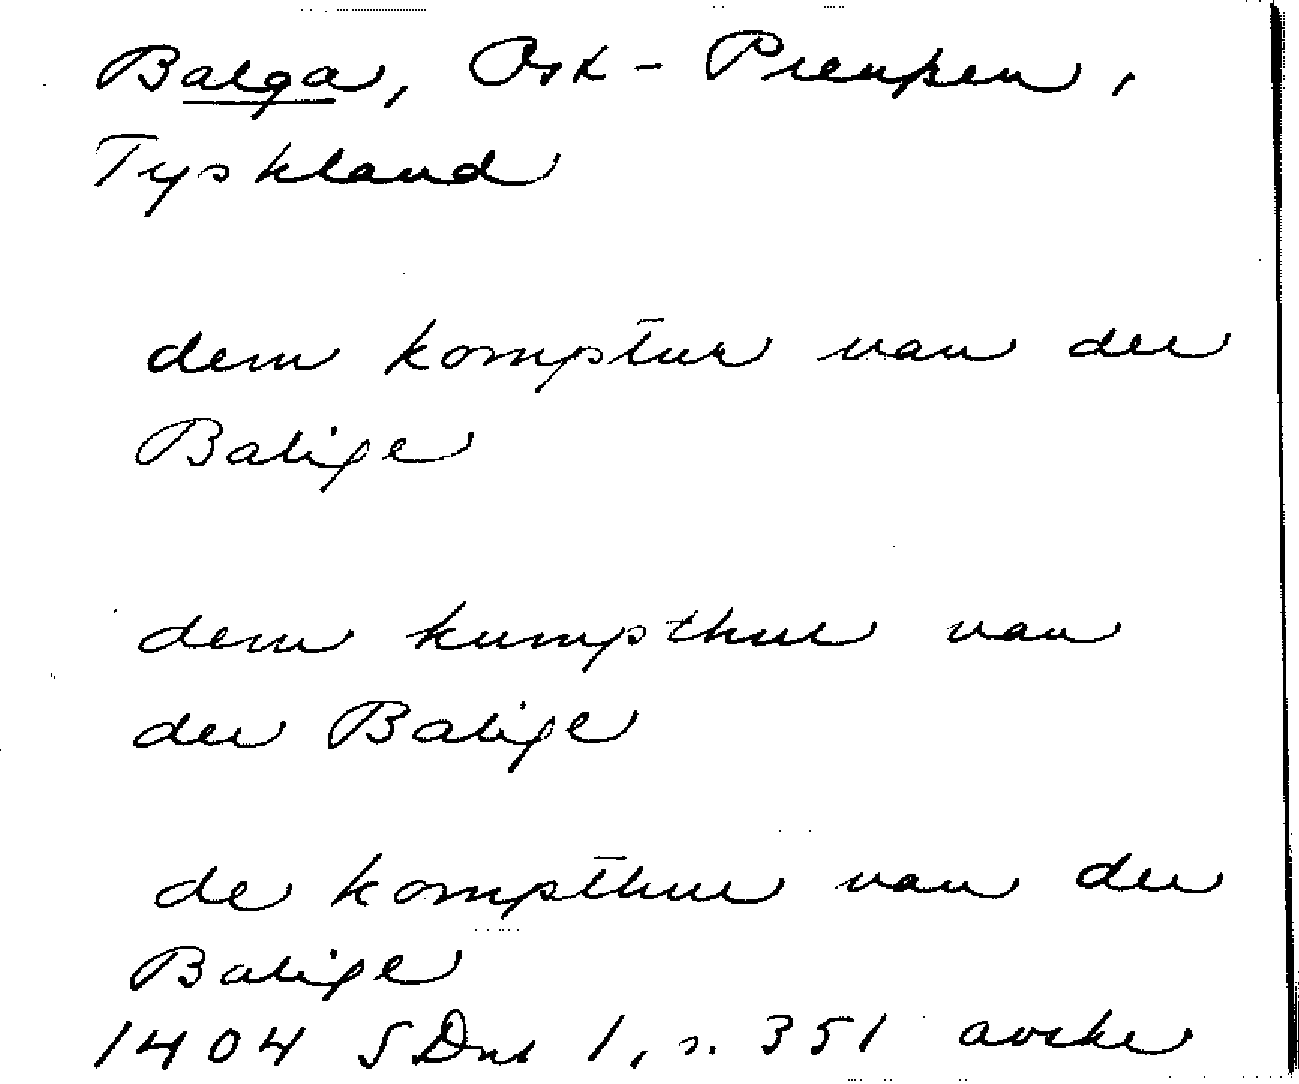 Balga, Ost-Preußen,
Tyskland
dem komptur van der
Balige
dem kumpthur van
der Balige
de kompthur van der
Balige
1404 SDns 1, s. 351 avskr